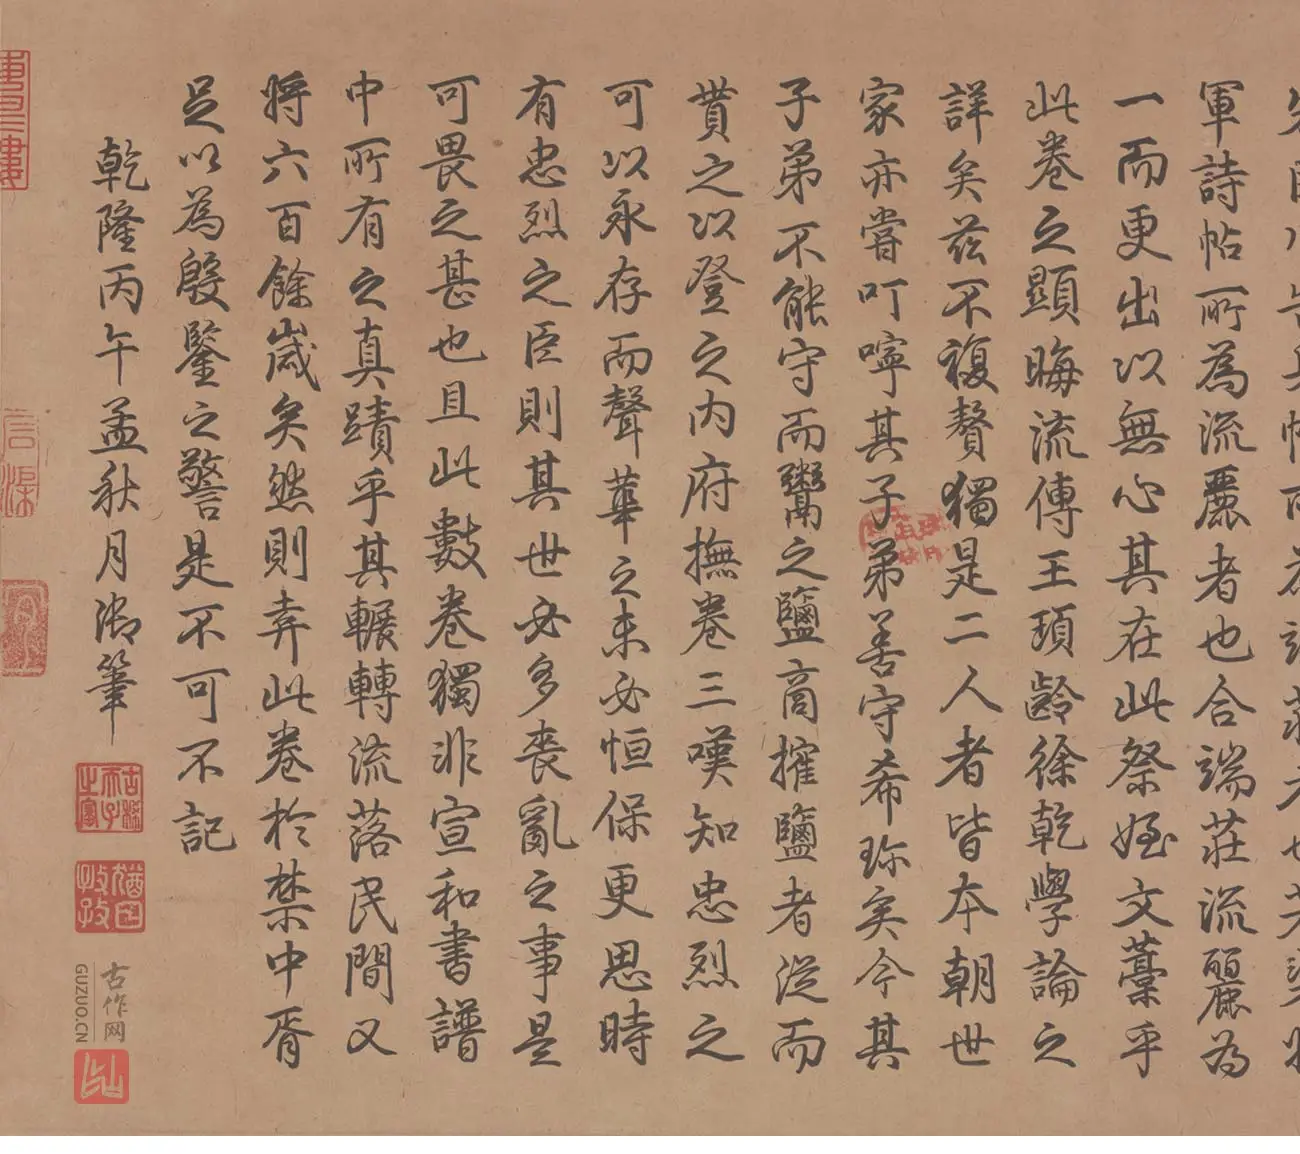 軍詩帖所為流麗者也合端莊流麗為
一而更出以無心其在此祭姪文藳乎
此卷之顯晦流傳王頊齡徐乾學論之
詳矣茲不複贅獨是二人者皆本朝世
家亦嘗叮嚀其子弟善守希珎矣今其
子弟不能守而鬻之鹽商搉鹽者從而
貰之以登之内府撫卷三嘆知忠烈之
可以永存而聲華之未必恒保更思時
有忠烈之臣則其世必多喪亂之事是
可畏之甚也且此數卷獨非宣和書譜
中所有之真蹟乎其輾轉流落民間又
將六百餘歲矣然則弆此卷於禁中胥
足以為殷鑒之警是不可不記
乾隆丙午孟秋月御筆
古稀天子之寶
猶日孜孜
古作网
GUZUO.CN